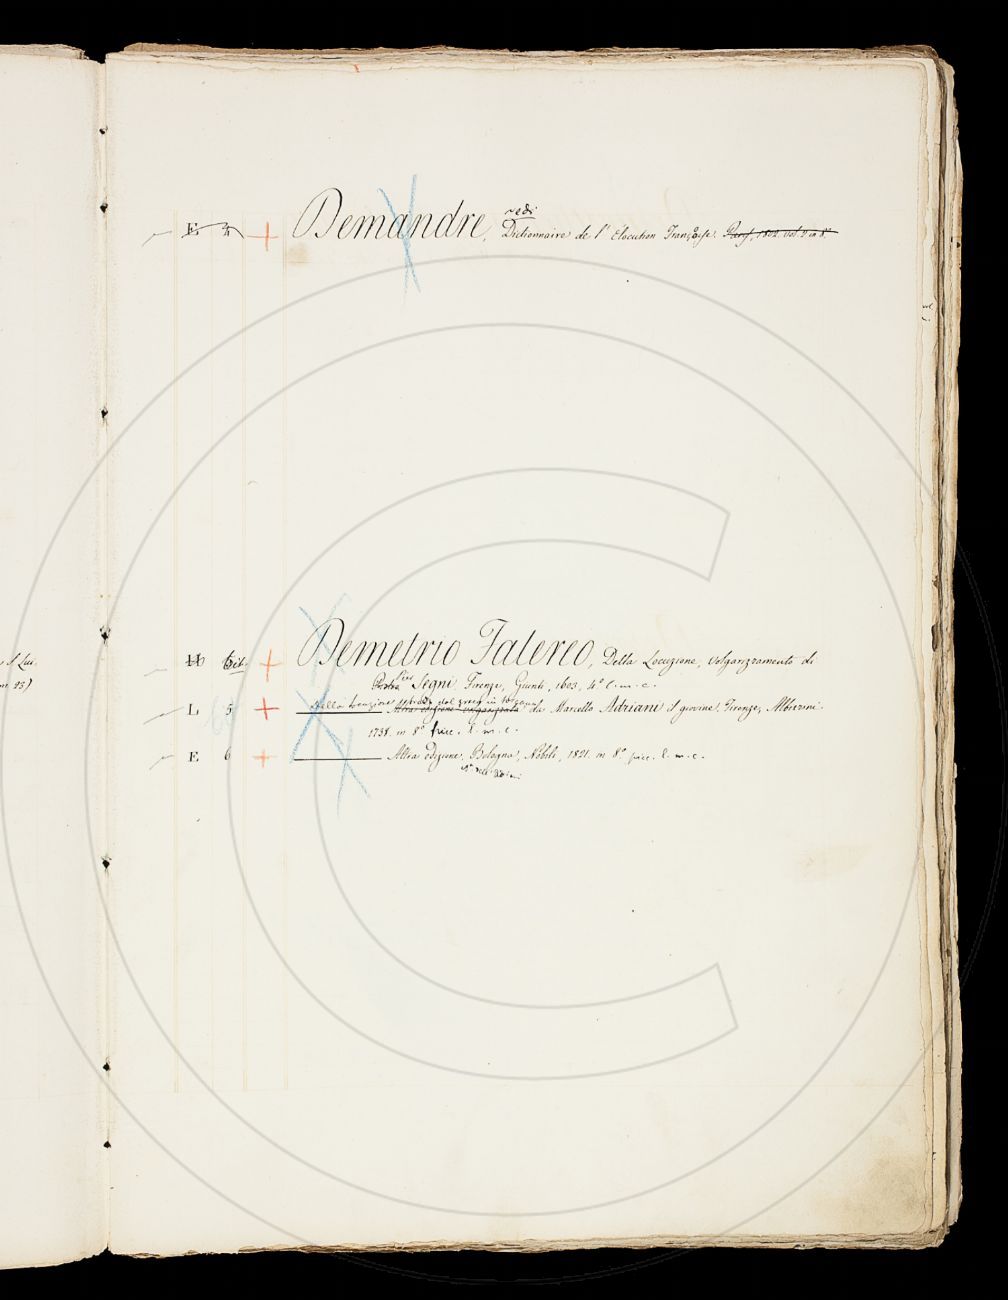 e S Lui.
vedi
E 4 Demandre, Dictionnaire de l' Elocution Françoise. Paris, 1802. vol 2 in 8°
Demetrio Falereo, Della Locuzione, volgarizzamento di
Pier Segni, Firenze, Giunti, 1603, 4° l. m. c.
Della Locuzione tradotto dal greco in toscano
L 5 Altra edizione volgarizzata da Marcello Adriani il giovine, Firenze, Albizzini
1738. in 8° picc. l. m. c.
E 6 Altra edizione, Bologna, Nobili, 1821. in 8° picc. l. m. c.